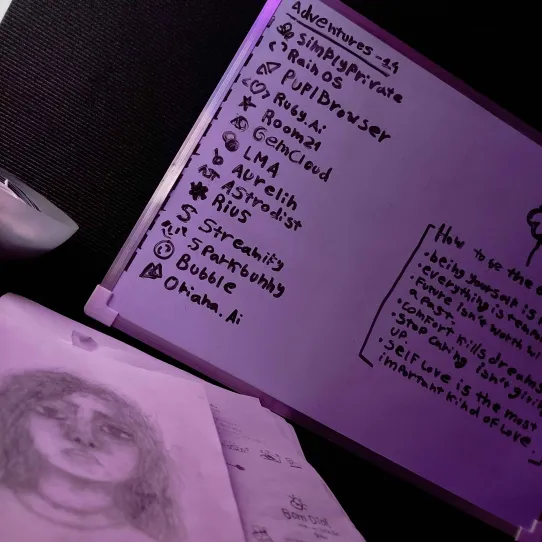 Adventures -14
SimplyPrivate
Rain OS
PuplBrowser
Ruby.Ai
Room21
GemCloud
LMA
Aurelih
AStrodist
Rius
Streamify
Sparkbunny
Bubble
Oriana.Ai
How to be the
• being yourself is
• everything is
• Future isn't worth
a past.
• comfort kills dreams
• Stop caring isn't
up.
• Self Love is the most
important kind of Love.